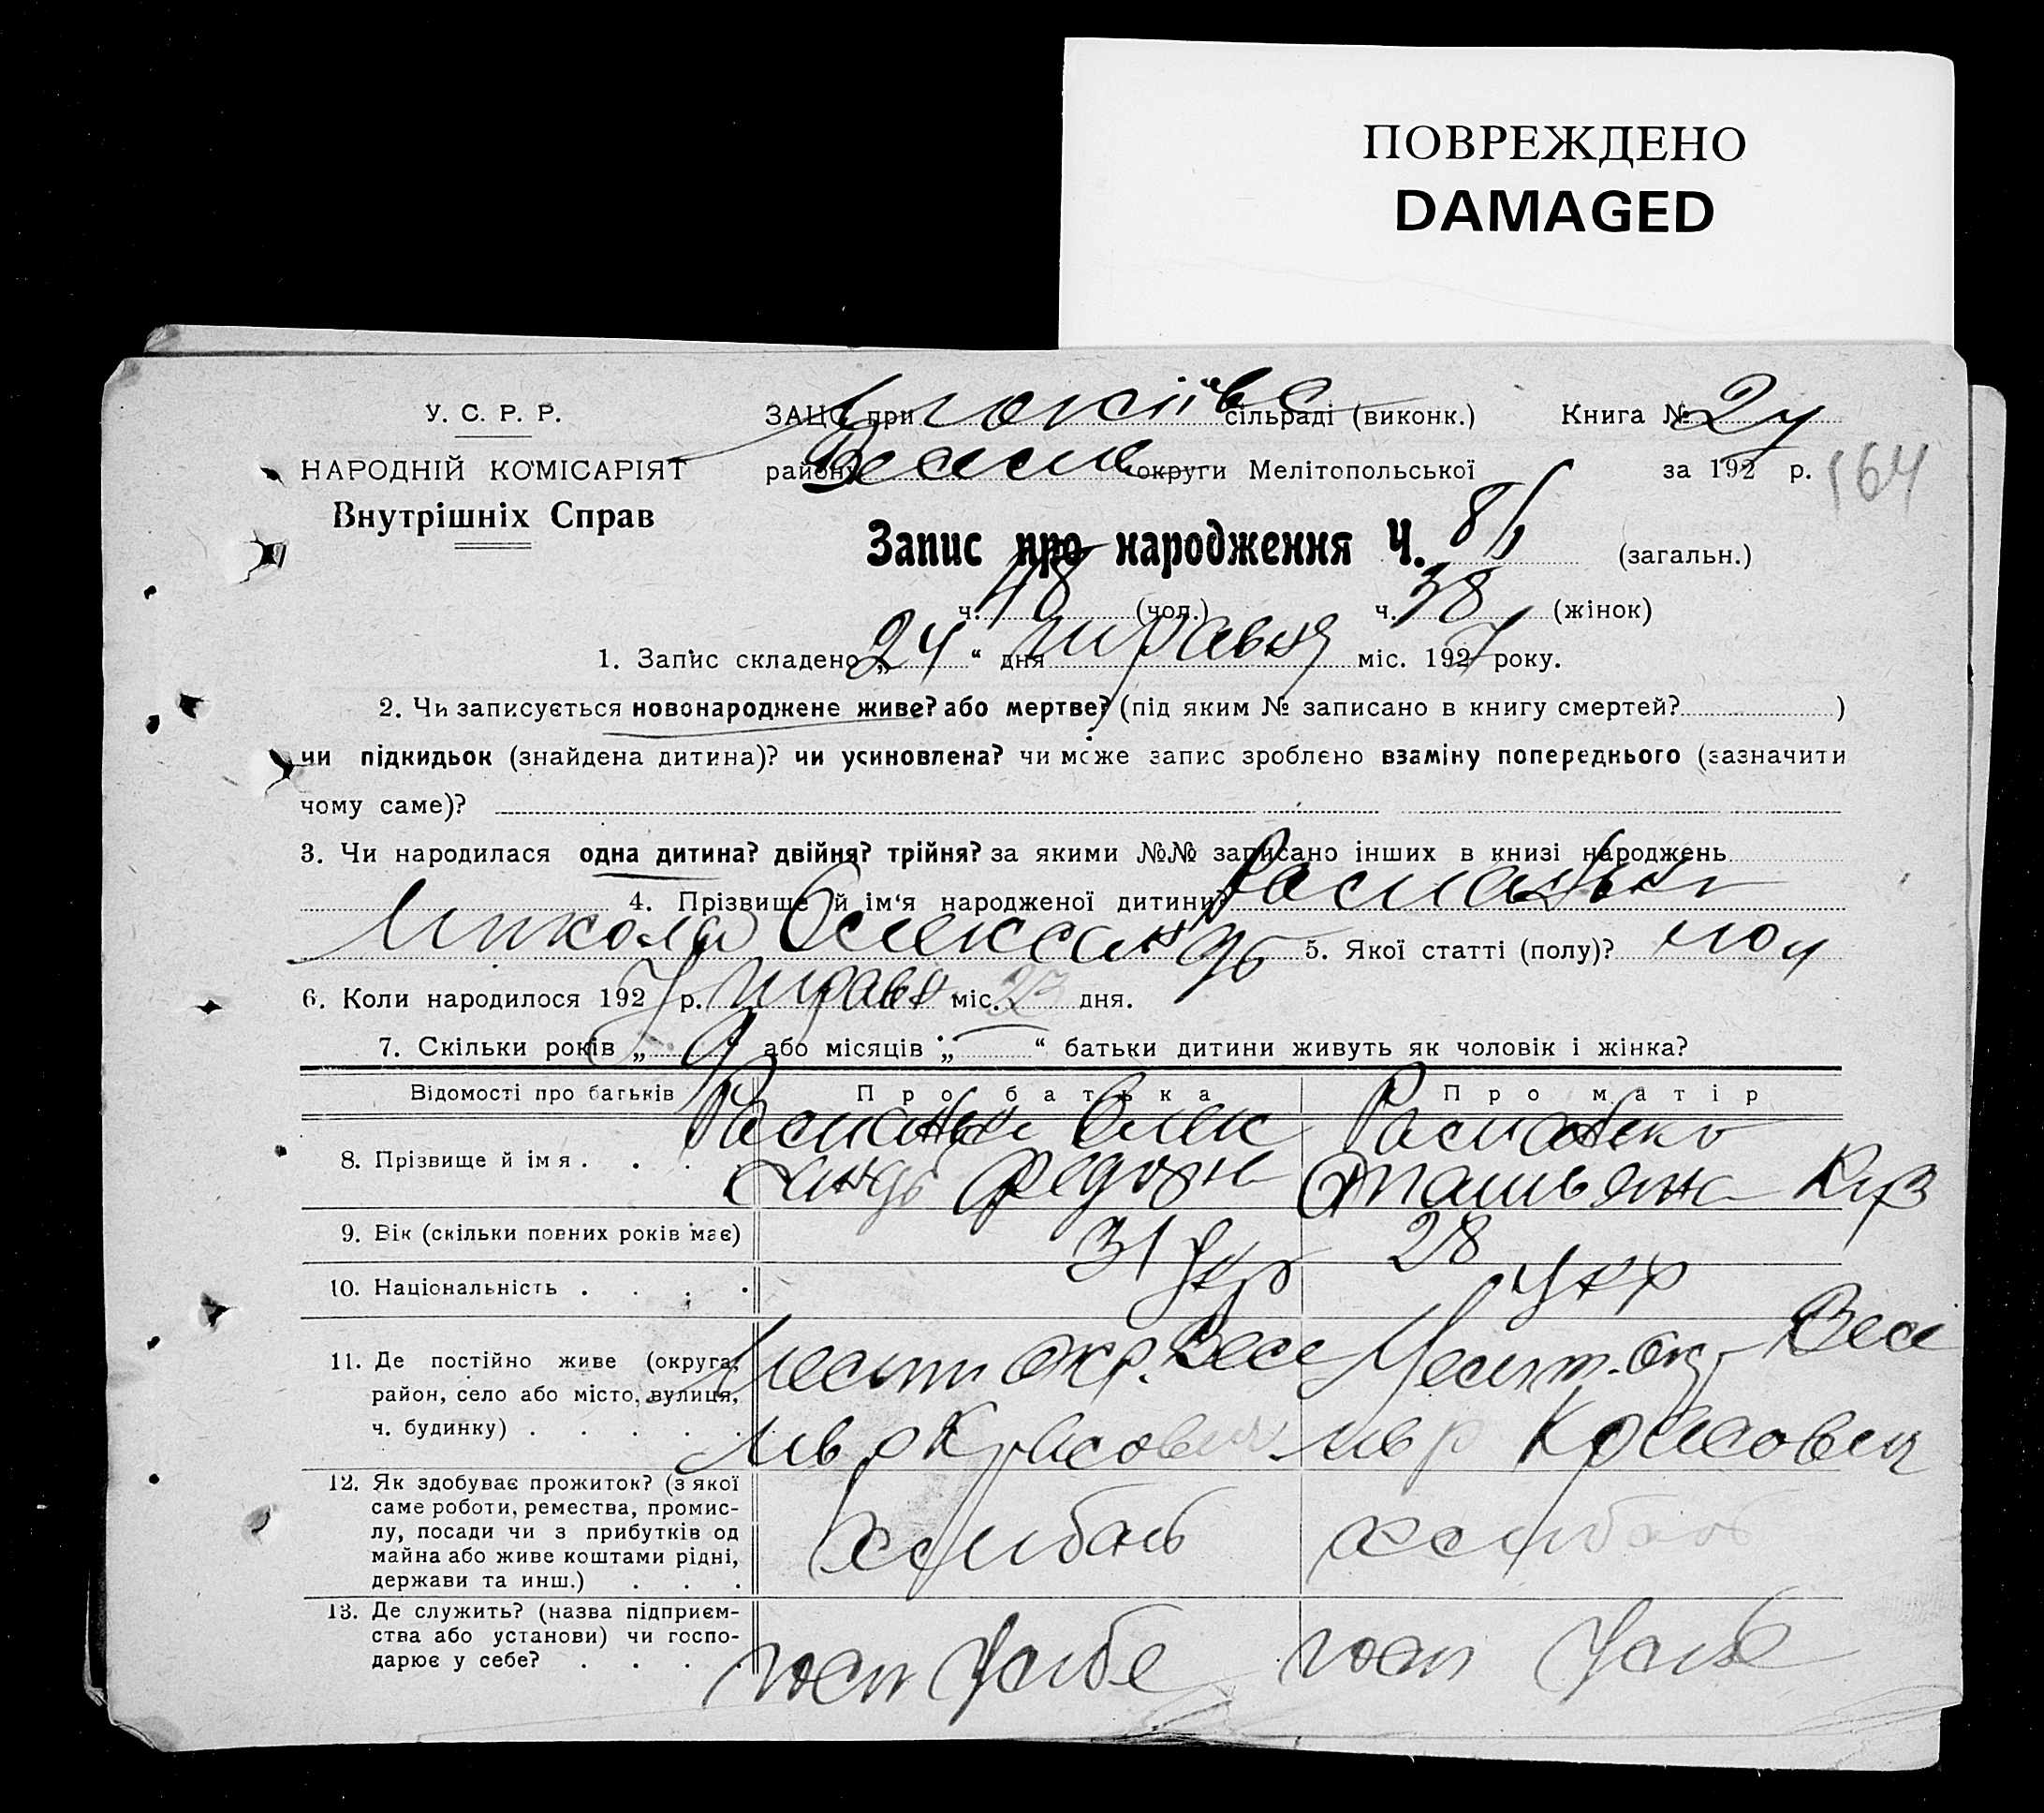 ПОВРЕЖДЕНО
DAMAGED
У. С. Р. Р.
НАРОДНІЙ КОМІСАРІЯТ
Внутрішніх Справ
ЗАЦС при сільраді (виконк.) Книга № 24
району Весел округи Мелітопольської за 192 р.
164
Запис про народження Ч. 86 (загальн.)
ч. 48 (чол.) ч. 38 (жінок)
1. Запис складено „ 24 “ дня травня міс. 1927 року.
2. Чи записується новонароджене живе? або мертве? (під яким № записано в книгу смертей? )
чи підкидьок (знайдена дитина)? чи усиновлена? чи може запис зроблено взаміну попереднього (зазначити
чому саме)?
3. Чи народилася одна дитина? двійня? трійня? за якими №№ записано інших в книзі народжень
4. Прізвище й ім'я народженої дитини?
Микола Олександр 5. Якої статті (полу)? чол
6. Коли народилося 1927 р. травн міс. 23 дня.
7. Скільки років „ 9 “ або місяців „ “ батьки дитини живуть як чоловік і жінка?
Відомості про батьків Про батька Про матір
8. Прізвище й імя . . . Олек
сандр Федоров Куз
9. Вік (скільки повних років має) 31 28
10. Національність . . . . укр укр
11. Де постійно живе (округа, Меліт окр. Весе Меліт. окр Весе
район, село або місто, вулиця,
ч. будинку) . . . . . лів р лів р
12. Як здобуває прожиток? (з якої
саме роботи, ремества, промис-
лу, посади чи з прибутків од хлібоб хлібоб
майна або живе коштами рідні,
держави та инш.) . . .
13. Де служить? (назва підприєм-
ства або установи) чи госпо-
дарює у себе? . . . . госп у себе госп у себе